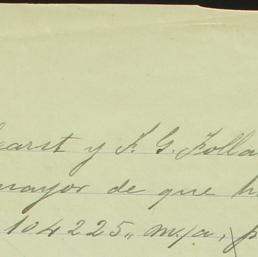 earst y F. G. Folla
mayor de que h
104225,, m/a, p